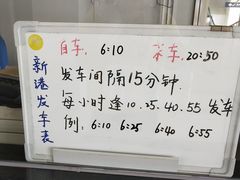 首车: 6:10 末车: 20:50
新港发车表
发车间隔15分钟.
每小时逢10.25.40.55发车
例: 6:10 6:25 6:40 6:55